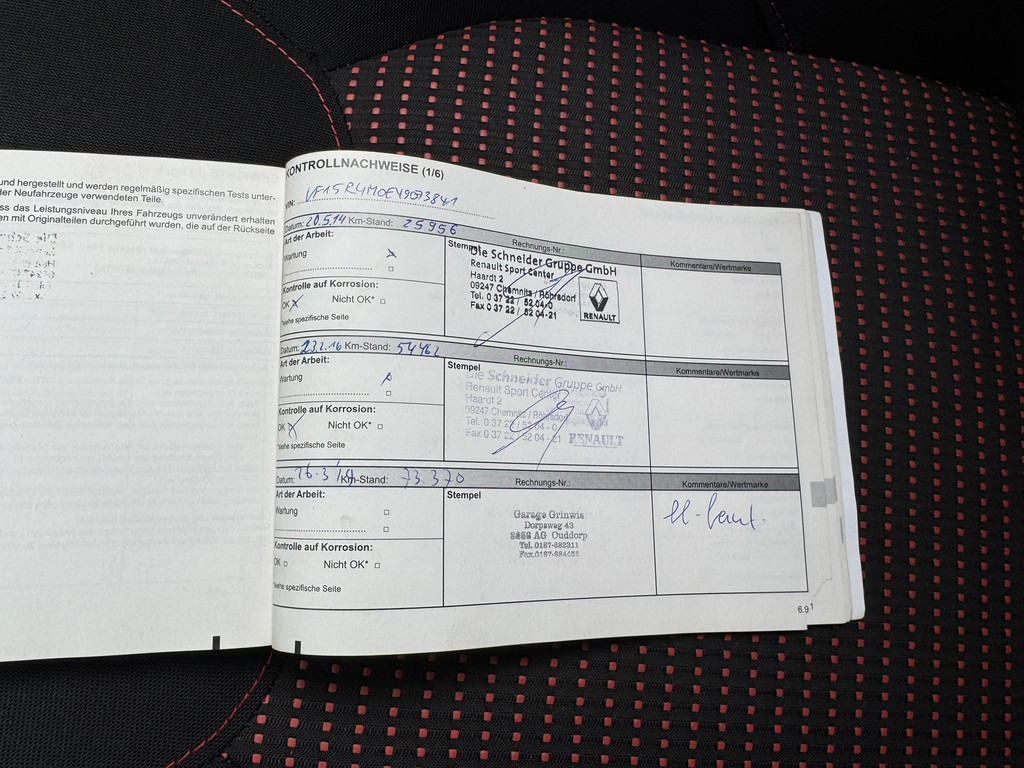 und hergestellt und werden regelmäßig spezifischen Tests unter-
der Neufahrzeuge verwendeten Teile.
ss das Leistungsniveau Ihres Fahrzeugs unverändert erhalten
en mit Originalteilen durchgeführt wurden, die auf der Rückseite
KONTROLLNACHWEISE (1/6)
VIN:
Datum: 20.5.14 Km-Stand: 25956
Rechnungs-Nr.:
Kommentare/Wertmarke
Art der Arbeit:
Wartung
Stempel
Die Schneider Gruppe GmbH
Renault Sport Center
Haardt 2
09247 Chemnitz / Röhrsdorf
Tel. 0 37 22 / 52 04-0
Fax 0 37 22 / 52 04-21
RENAULT
Kontrolle auf Korrosion:
OK Nicht OK*
*siehe spezifische Seite
Datum: 23.2.16 Km-Stand: 54462
Rechnungs-Nr.:
Kommentare/Wertmarke
Art der Arbeit:
Wartung
Stempel
Die Schneider Gruppe GmbH
Renault Sport Center
Haardt 2
09247 Chemnitz / Röhrsdorf
Tel. 0 37 22 / 52 04 - 0
Fax 0 37 22 / 52 04 - 21
RENAULT
Kontrolle auf Korrosion:
OK Nicht OK*
*siehe spezifische Seite
Datum: Km-Stand: 73.370
Rechnungs-Nr.:
Kommentare/Wertmarke
Art der Arbeit:
Wartung
Stempel
Garage Grinwis
Dorpsweg 43
AG Ouddorp
Tel. 0187-682311
Kontrolle auf Korrosion:
OK Nicht OK*
*siehe spezifische Seite
6.91